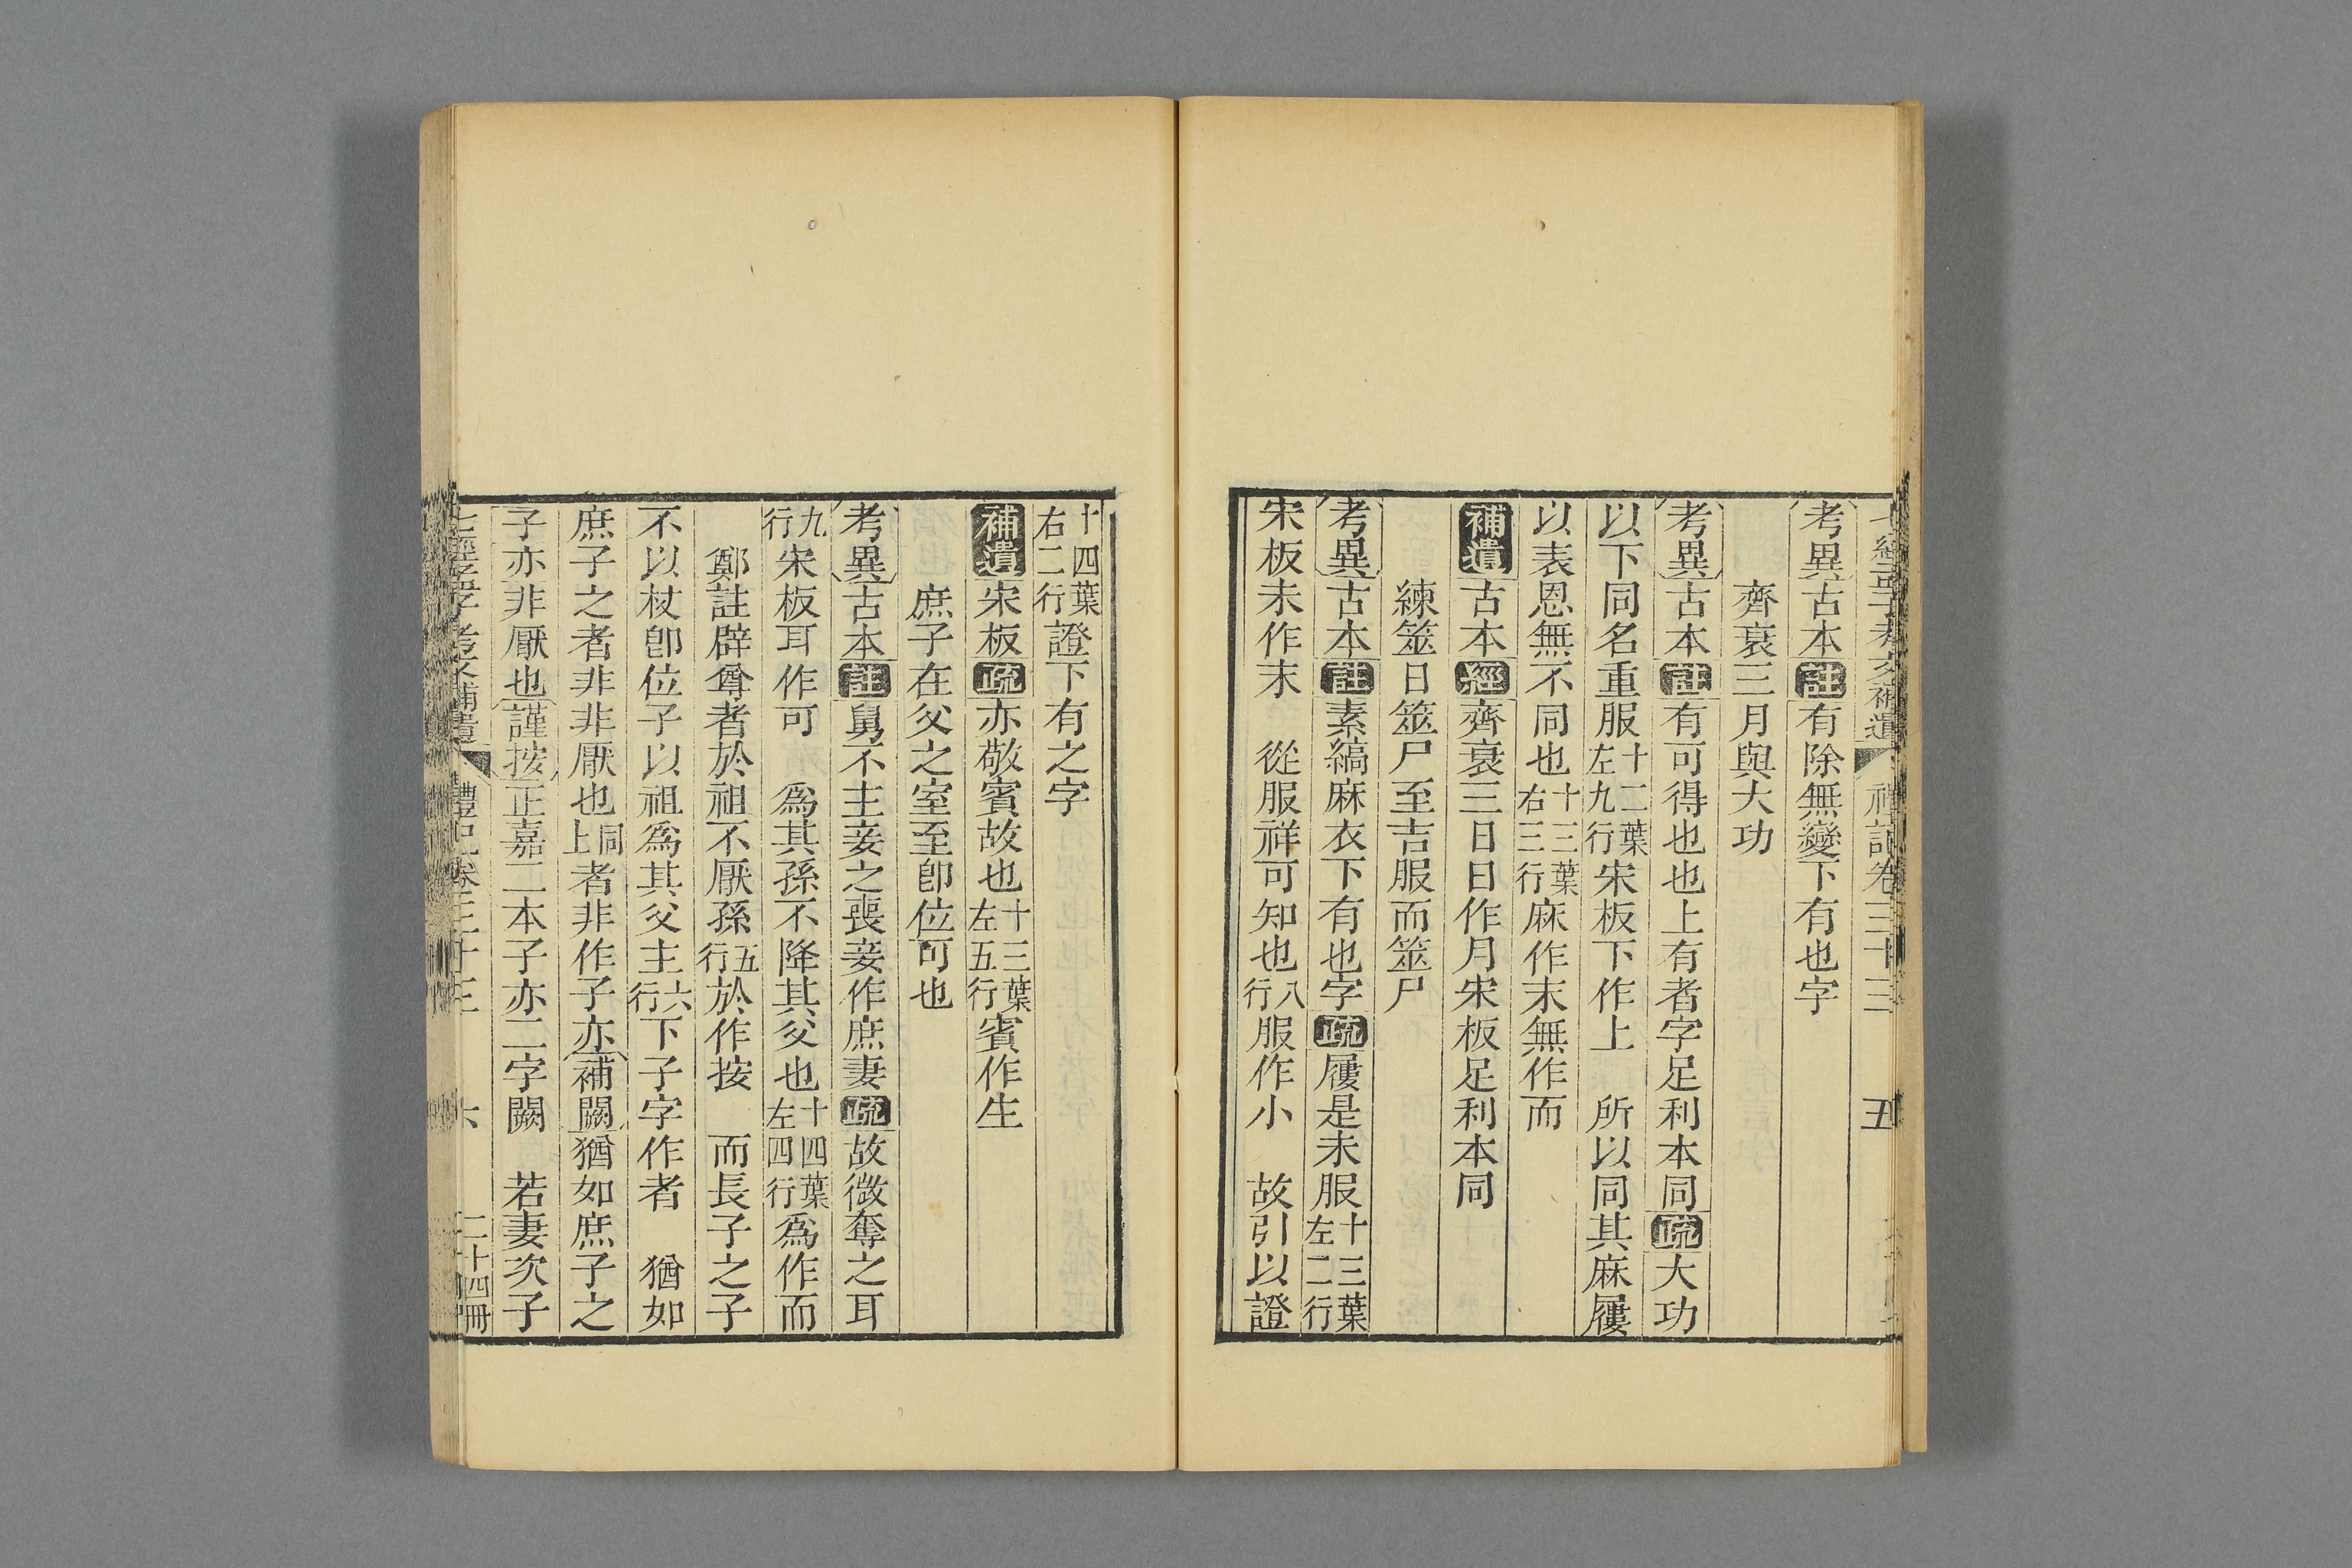 七經孟子考文補遺 禮記卷三十三 五
考異古本註有除無變下有也字
齊衰三月與大功
考異古本註有可得也也上有者字足利本同疏大功
以下同名重服十二葉左九行宋板下作上　所以同其麻屨
以表恩無不同也十三葉右三行麻作末無作而
補遺古本經齊衰三日日作月宋板足利本同
練筮日筮尸至吉服而筮尸
考異古本註素縞麻衣下有也字疏屨是未服十三葉左二行
宋板未作末　從服祥可知也八行服作小　故引以證
十四葉右二行證下有之字
補遺宋板疏亦敬賓故也十三葉左五行賓作生
庶子在父之室至卽位可也
考異古本註舅不主妾之喪妾作庶妻疏故微奪之耳
九行宋板耳作可　爲其孫不降其父也十四葉左四行爲作而
鄭註辟尊者於祖不厭孫五行於作按　而長子之子
不以杖卽位子以祖爲其父主六行下子字作者　猶如
庶子之者非非厭也同上者非作子亦補闕猶如庶子之
子亦非厭也謹按正嘉二本子亦二字闕　若妻次子
七經孟子考文補遺 禮記卷三十三 六 二十四冊